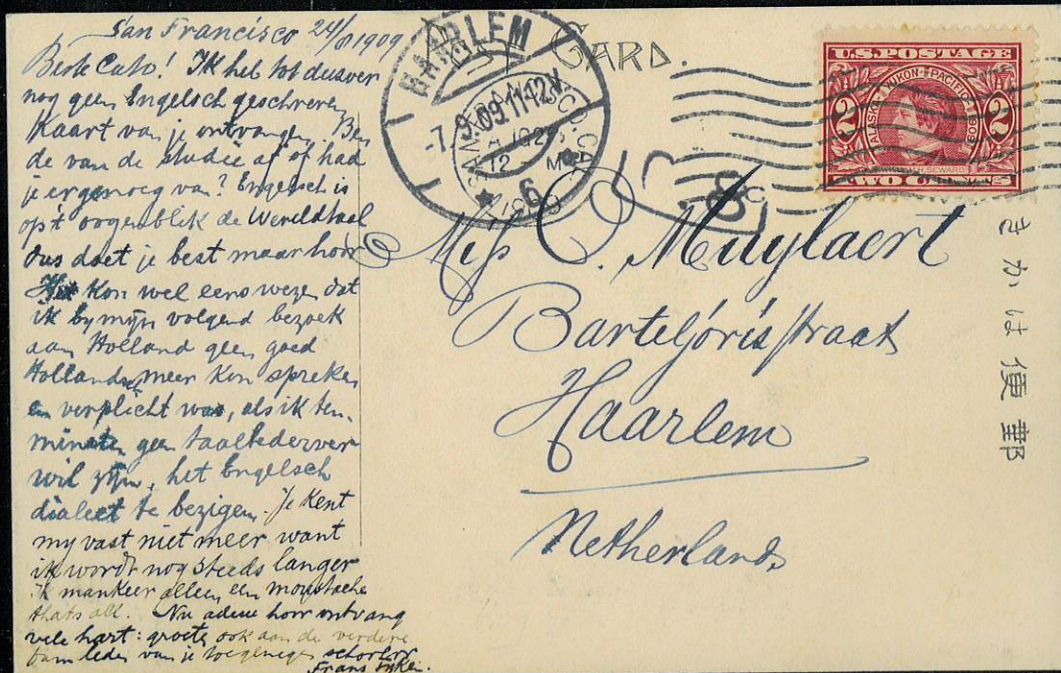 San Francisco 24/8 1909
Beste Cato! Ik heb tot dusver
nog geen Engelsch geschreven
Kaart van je ontvangen. Ben
de van de studie af of had
je er genoeg van? Engelsch is
op't oogenblik de Wereldtaal
dus doet je best maar hoor
Het kon wel eens wezen dat
ik by mijn volgend bezoek
aan Holland geen goed
Hollandsch meer kon spreken
en verplicht was, als ik ten-
minste geen taalbederver
wil zijn, het Engelsch
dialect te bezigen. Je kent
my vast niet meer want
ik wordt nog steeds langer
Ik mankeer alleen een moustache
thats all. Nu adieu hoor ontvang
vele hart: groeten ook aan de verdere
fam leden van je toegenegen
Frans
CARD.
HAARLEM
-7.9.09.11-12V
SAN FRANCISCO, CAL.
AUG 25
12 - M
1909
6
8
U.S. POSTAGE
ALASKA-YUKON-PACIFIC 1909
2 2
WM. H. SEWARD
TWO CENTS
Miss C. Muylaert
Barteljorisstraat
Haarlem
Netherlands
きかは便郵